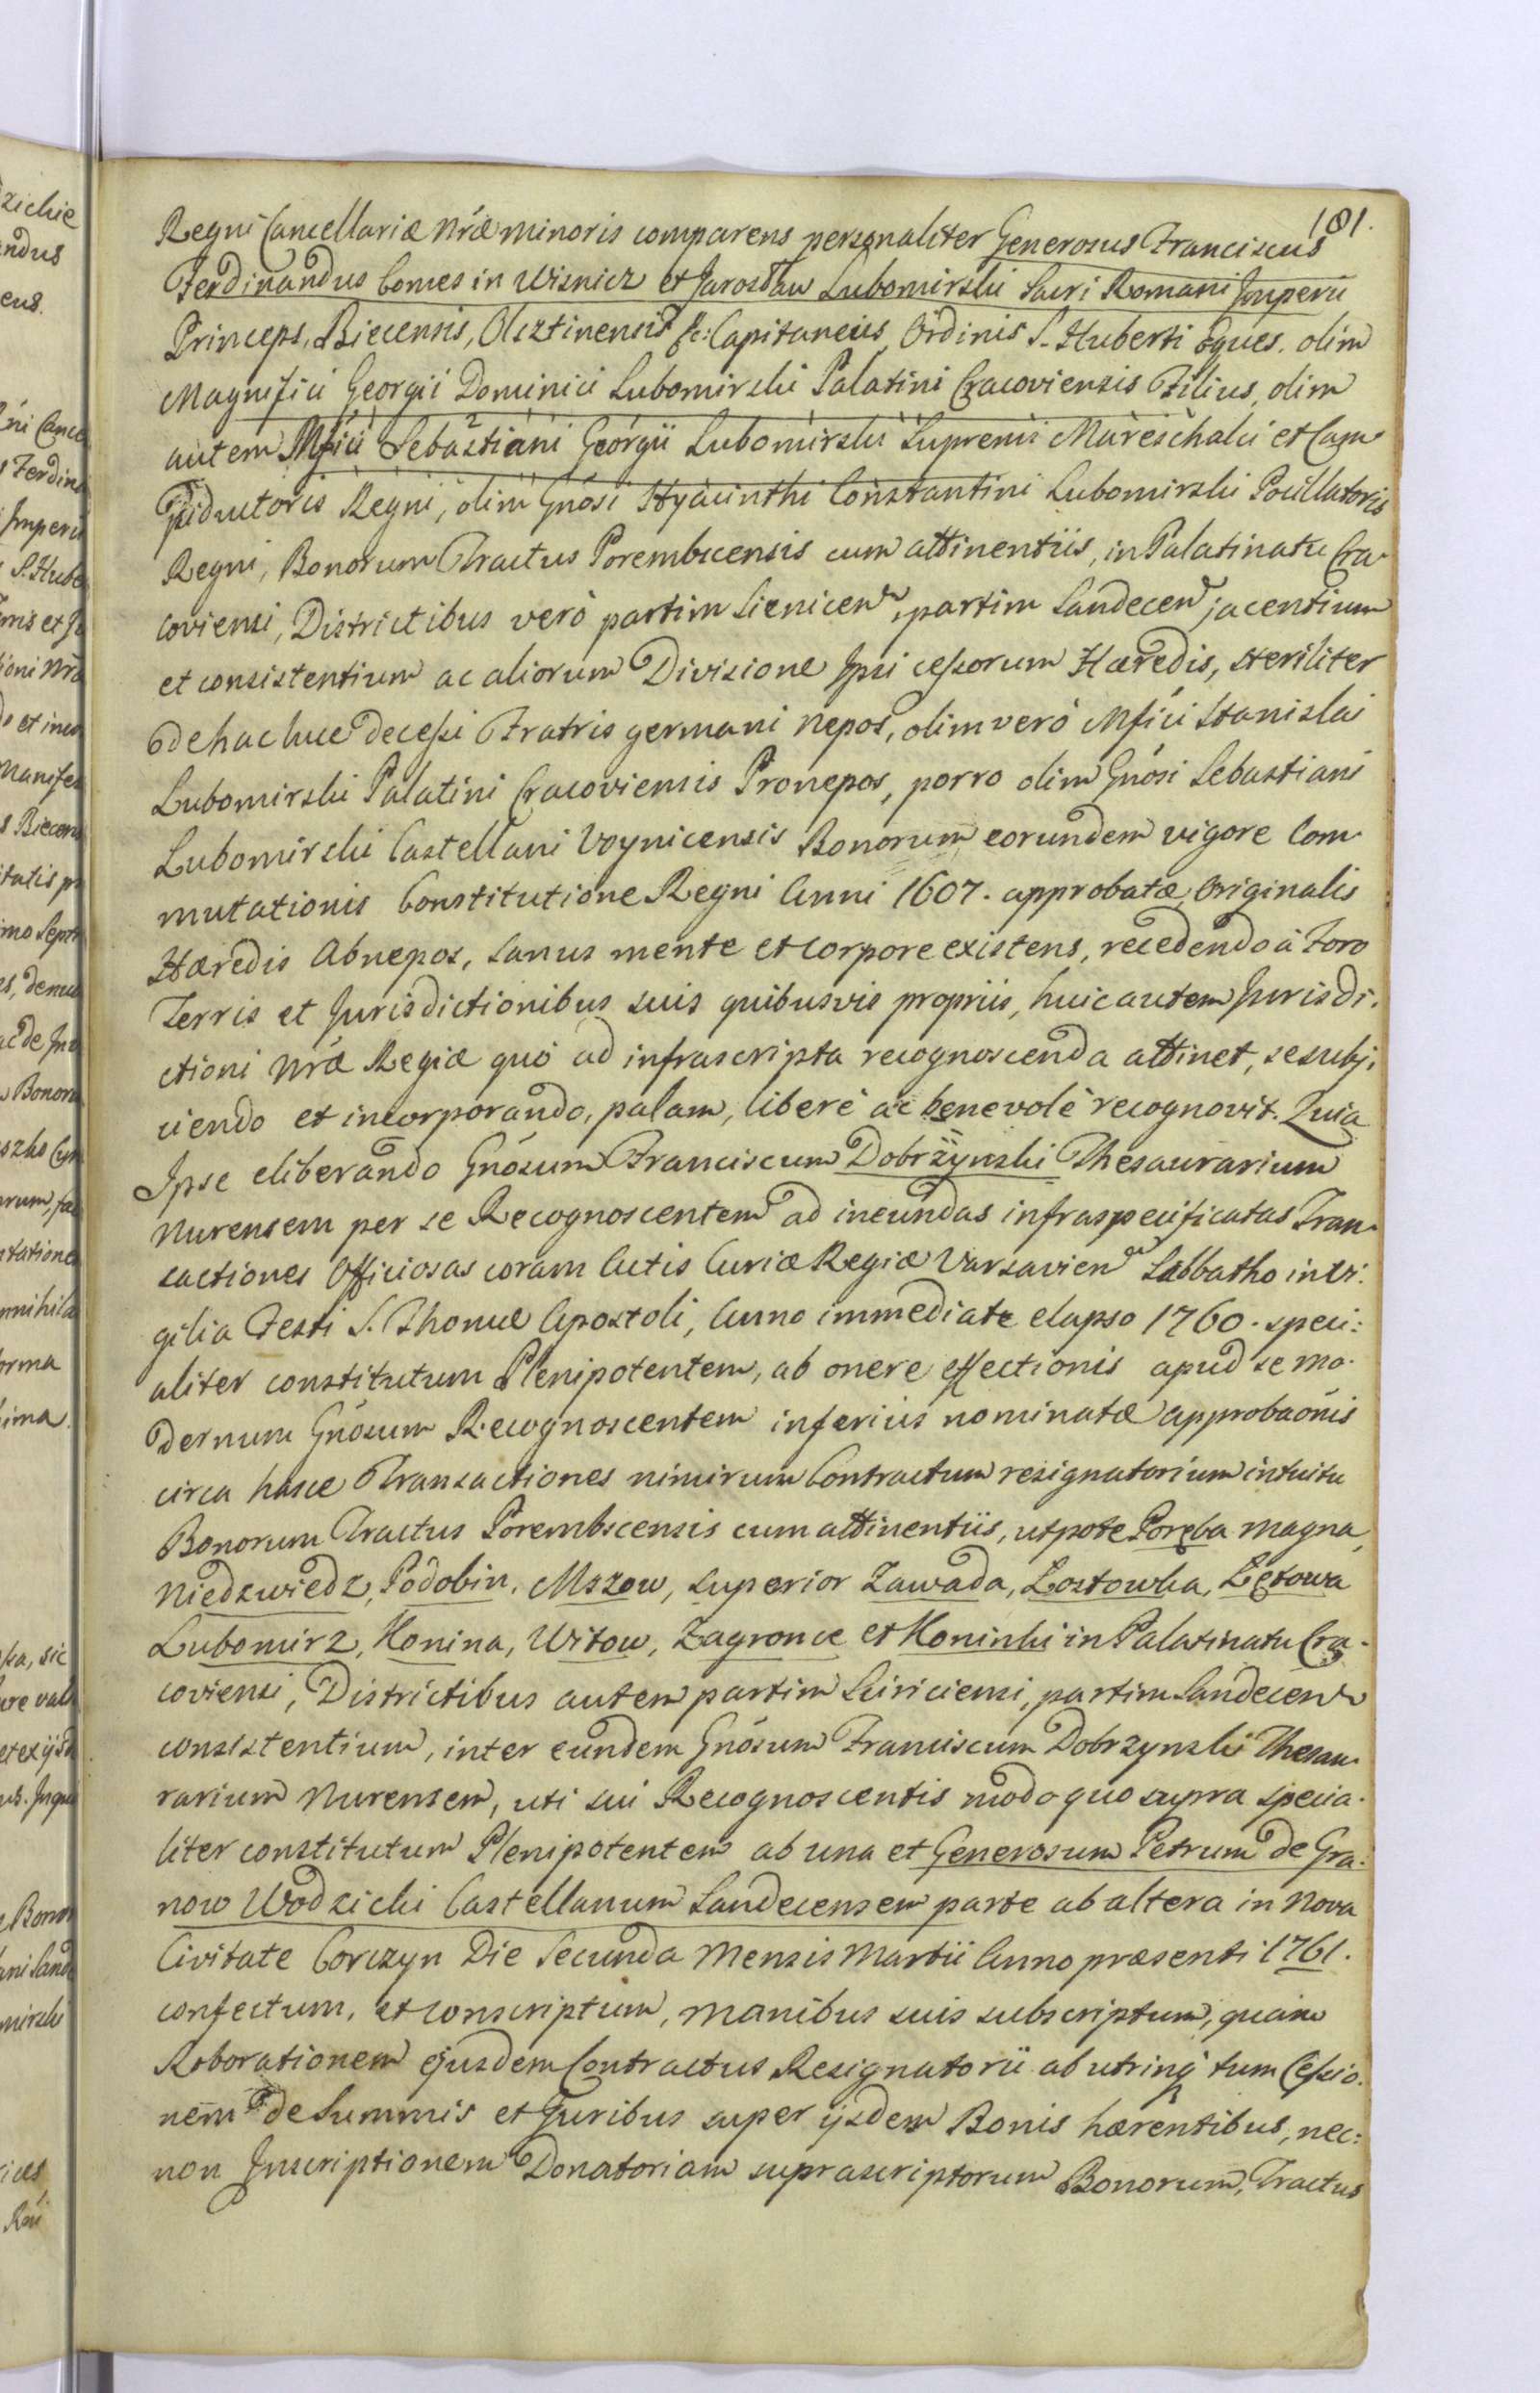 181.
Regni Cancellariæ Nræ minoris comparens personaliter Generosus Franciscus
Ferdinandus Comes in Wisnicz et Jarosław Lubomirski Sacri Romani Imperii
Princeps, Biecensis, Olsztinensis &c: Capitaneus, Ordinis S. Huberti Eques. olim
Magnifici Georgii Dominici Lubomirski Palatini Cracoviensis Filius, olim
autem Mfici Sebastiani Georgii Lubomirski Supremi Mareschalci et Cam
piductoris Regni, olim Gnosi Hyacinthi Constantini Lubomirski Pocillatoris
Regni, Bonorum Tractus Porembscensis cum attinentiis, in Palatinatu Cra-
coviensi, Districtibus verò partim Sicnicen, partim Sandecen jacentium
et consistentium ac aliorum Divisione Ipsi cessorum Hæredis, steriliter
de hac luce decessi Fratris germani Nepos, olim verò Mfici Stanislai
Lubomirski Palatini Cracoviensis Pronepos, porro olim Gnosi Sebastiani
Lubomirski Castellani Voynicensis Bonorum eorundem vigore Com
mutationis Constitutione Regni Anni 1607. approbatæ, Originalis
Hæredis Abnepos, sanus mente et corpore existens, recedendo à Foro
Terris et Jurisdictionibus suis quibusvis propriis, huic autem Jurisdi.
ctioni Nræ Regiæ quò ad infrascripta recognoscenda attinet, se subji
ciendo et incorporando, palam, liberè ac benevolè recognovit. Quia
Ipse eliberando Gnosum Franciscum Dobrzynski Thesaurarium
Nurensem per se Recognoscentem ad ineundas infraspecificatas Tran
sactiones Officiosas coram Actis Curiæ Regiæ Varsavien Sabbatho in Vi:
gilia Festi S. Thomæ Apostoli, Anno immediate elapso 1760. speci:
aliter constitutum Plenipotentem, ab onere effectionis apud se mo.
dernum Gnosum Recognoscentem inferius nominatæ approbaonis
circa hasce Transactiones nimirum Contractum resignatorium intuitu
Bonorum Tractus Porembscensis cum attinentiis, utpote Poręba magna,
Niedzwiedz, Podobin, Mszow, superior Zawada, Łostowka, Łętowa
Lubomirz, Konina, Witow, Zagronce et Koninki in Palatinatu Cra-
coviensi, Districtibus autem partim Siriciensi, partim Sandecen
consistentium, inter eundem Gnosum Franciscum Dobrzynski Thesau
rarium Nurensem, uti sui Recognoscentis modo quo supra specia.
liter constitutum Plenipotentem ab una et Generosum Petrum de Gra.
now Wodzicki Castellanum Sandecensem parte ab altera in Nova
Civitate Corczyn Die Secunda Mensis Martii Anno præsenti 1761.
confectum, et conscriptum, manibus suis subscriptum, quàm
Roborationem ejusdem Contractus Resignatorii ab utrinq tum Cessio.
nem de Summis et Juribus super ijsdem Bonis hærentibus, nec:
non Inscriptionem Donatoriam suprascriptorum Bonorum, Tractus